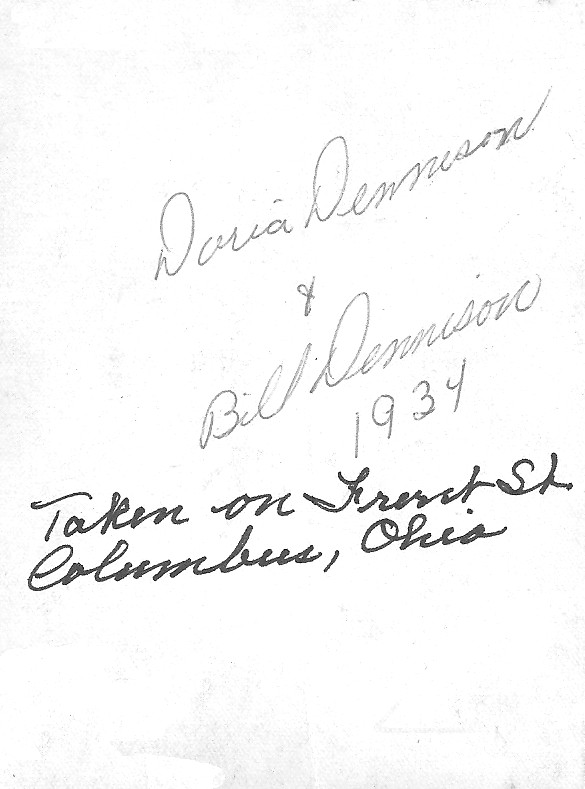 Doria Dennison
&
Bill Dennison
1934
Taken on Front St.
Columbus, Ohio